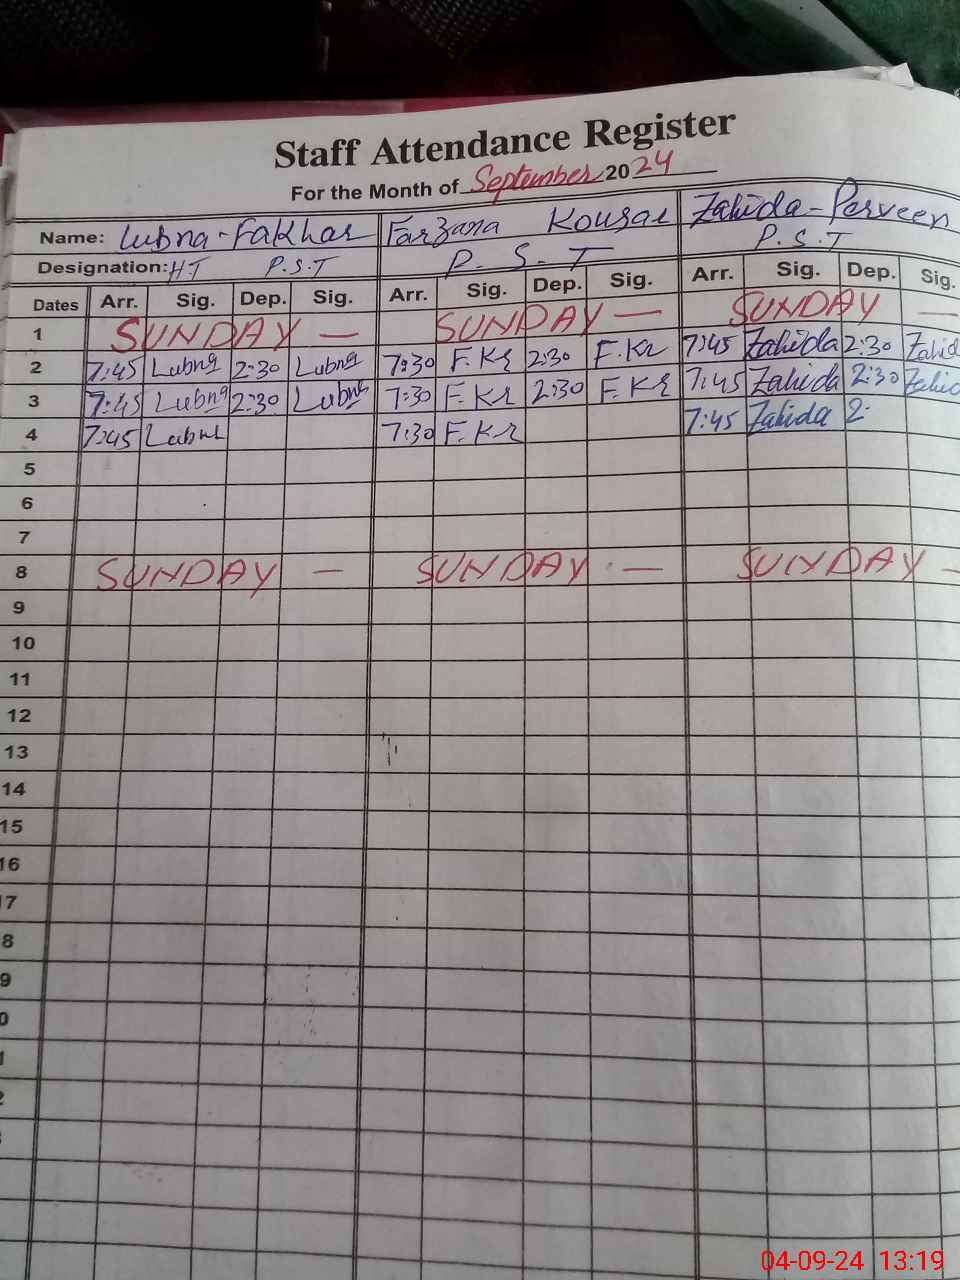 Staff Attendance Register
For the Month of September 2024
Name: Lubna-Fakhar Farzana Kousar Zahida-Perveen
Designation: HT P.S.T P.S.T P.S.T
Dates Arr. Sig. Dep. Sig. Arr. Sig. Dep. Sig. Arr. Sig. Dep. Sig.
1 SUNDAY — SUNDAY — SUNDAY —
2 7:45 Lubna 2:30 Lubna 7:30 F.Kr 2:30 F.Kr 7:45 Zahida 2:30 Zahid
3 7:45 Lubna 2:30 Lubna 7:30 F.Kr 2:30 F.Kr 7:45 Zahida 2:30 Zahid
4 7:45 Lubna 7:30 F.Kr 7:45 Zahida 2:
5
6
7
8 SUNDAY — SUNDAY — SUNDAY —
9
10
11
12
13
14
15
16
7
8
9
0
1
2
04-09-24 13:19